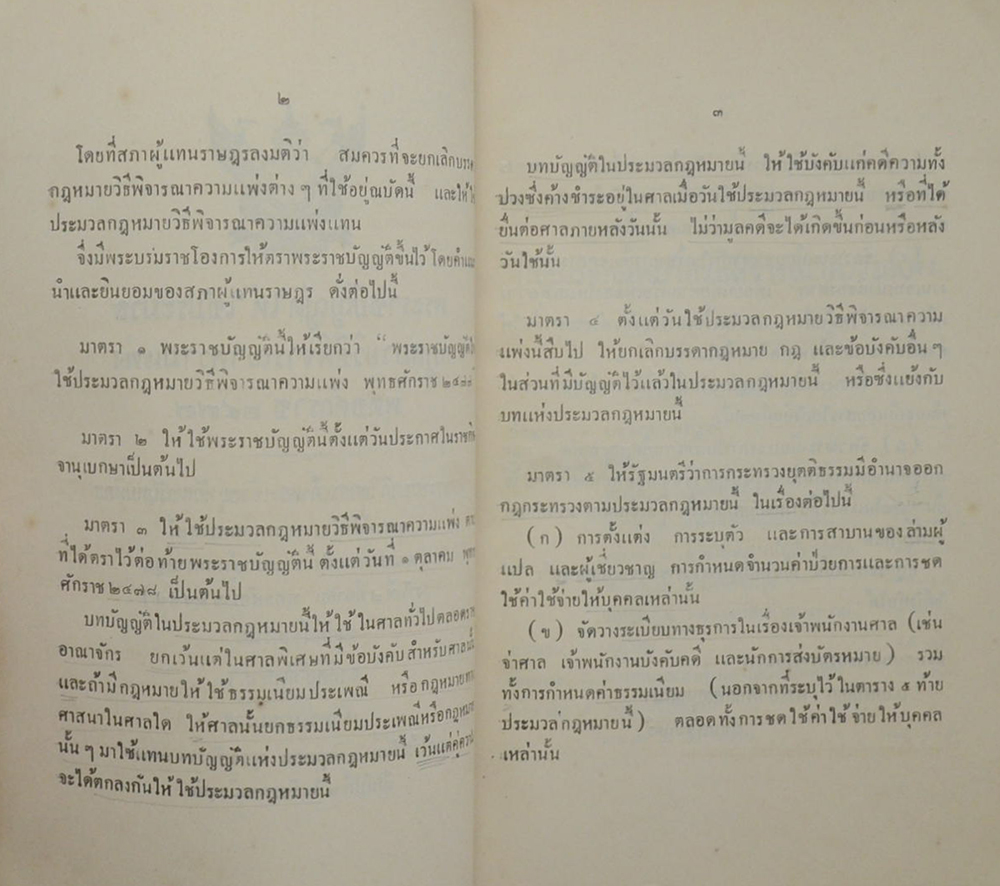 ๒
โดยที่สภาผู้แทนราษฎรลงมติว่า สมควรที่จะยกเลิกบรรดา
กฎหมายวิธีพิจารณาความแพ่งต่าง ๆ ที่ใช้อยู่ณบัดนี้ และให้ใช้
ประมวลกฎหมายวิธีพิจารณาความแพ่งแทน
จึ่งมีพระบรมราชโองการให้ตราพระราชบัญญัติขึ้นไว้ โดยคำแนะ
นำและยินยอมของสภาผู้แทนราษฎร ดั่งต่อไปนี้
มาตรา ๑ พระราชบัญญัตินี้ให้เรียกว่า “ พระราชบัญญัติ
ใช้ประมวลกฎหมายวิธีพิจารณาความแพ่ง พุทธศักราช
มาตรา ๒ ให้ใช้พระราชบัญญัตินี้ตั้งแต่วันประกาศในราชกิจ
จานุเบกษาเป็นต้นไป
มาตรา ๓ ให้ใช้ประมวลกฎหมายวิธีพิจารณาความแพ่ง ตาม
ที่ได้ตราไว้ต่อท้ายพระราชบัญญัตินี้ ตั้งแต่วันที่ ๑ ตุลาคม พุทธ
ศักราช ๒๔๗๘ เป็นต้นไป
บทบัญญัติในประมวลกฎหมายนี้ให้ใช้ในศาลทั่วไปตลอดราช
อาณาจักร ยกเว้นแต่ในศาลพิเศษที่มีข้อบังคับสำหรับศาลนั้น
และถ้ามีกฎหมายให้ใช้ธรรมเนียมประเพณี หรือกฎหมายทาง
ศาสนาในศาลใด ให้ศาลนั้นยกธรรมเนียมประเพณีหรือกฎหมาย
นั้น ๆ มาใช้แทนบทบัญญัติแห่งประมวลกฎหมายนี้ เว้นแต่คู่ความ
จะได้ตกลงกันให้ใช้ประมวลกฎหมายนี้
๓
บทบัญญัติในประมวลกฎหมายนี้ ให้ใช้บังคับแก่คดีความทั้ง
ปวงซึ่งค้างชำระอยู่ในศาลเมื่อวันใช้ประมวลกฎหมายนี้ หรือที่ได้
ยื่นต่อศาลภายหลังวันนั้น ไม่ว่ามูลคดีจะได้เกิดขึ้นก่อนหรือหลัง
วันใช้นั้น
มาตรา ๔ ตั้งแต่วันใช้ประมวลกฎหมายวิธีพิจารณาความ
แพ่งนี้สืบไป ให้ยกเลิกบรรดากฎหมาย กฎ และข้อบังคับอื่น ๆ
ในส่วนที่มีบัญญัติไว้แล้วในประมวลกฎหมายนี้ หรือซึ่งแย้งกับ
บทแห่งประมวลกฎหมายนี้
มาตรา ๕ ให้รัฐมนตรีว่าการกระทรวงยุตติธรรมมีอำนาจออก
กฎกระทรวงตามประมวลกฎหมายนี้ ในเรื่องต่อไปนี้
(ก) การตั้งแต่ง การระบุตัว และการสาบานของล่ามผู้
แปล และผู้เชี่ยวชาญ การกำหนดจำนวนค่าป่วยการและการชด
ใช้ค่าใช้จ่ายให้บุคคลเหล่านั้น
(ข) จัดวางระเบียบทางธุรการในเรื่องเจ้าพนักงานศาล (เช่น
จ่าศาล เจ้าพนักงานบังคับคดี และนักการส่งบัตรหมาย) รวม
ทั้งการกำหนดค่าธรรมเนียม (นอกจากที่ระบุไว้ในตาราง ๕ ท้าย
ประมวลกฎหมายนี้) ตลอดทั้งการชดใช้ค่าใช้จ่ายให้บุคคล
เหล่านั้น